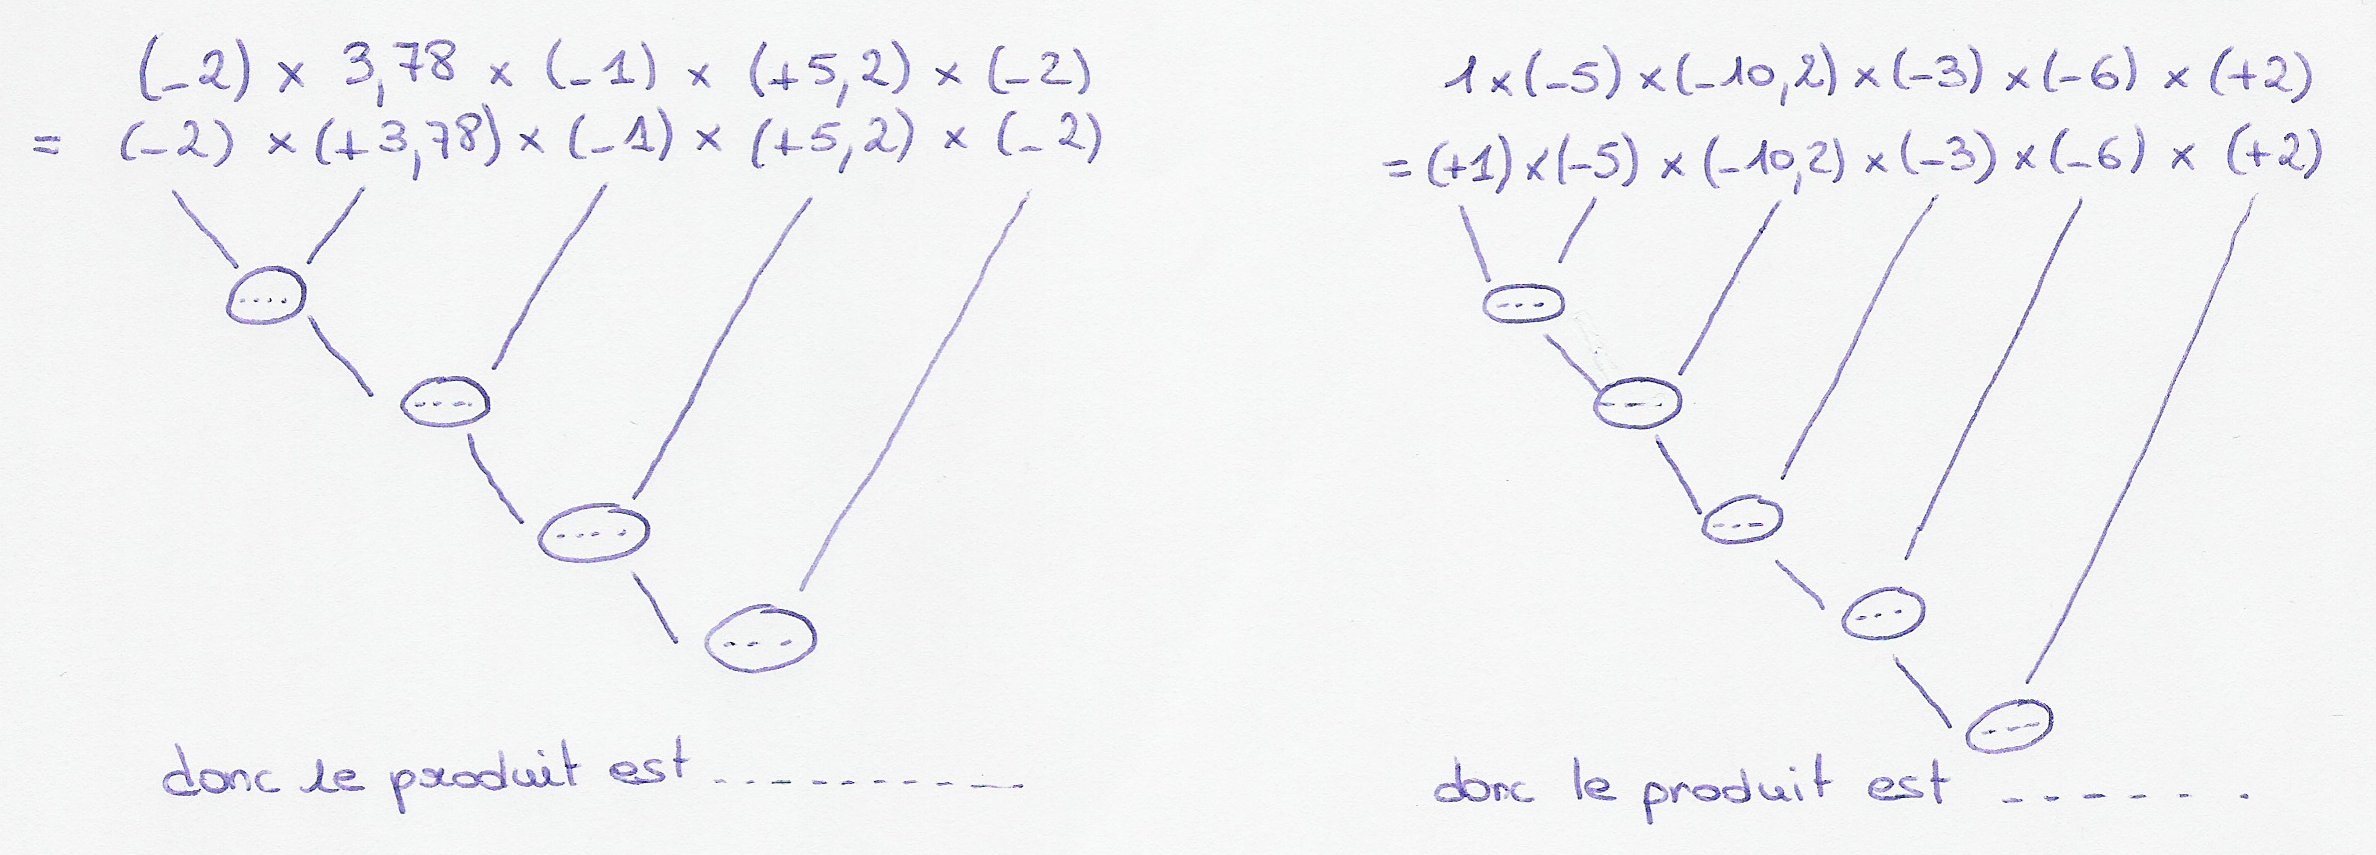 (-2) × 3,78 × (-1) × (+5,2) × (-2)
= (-2) × (+3,78) × (-1) × (+5,2) × (-2)
....
----
....
---
donc le produit est ----------
1 × (-5) × (-10,2) × (-3) × (-6) × (+2)
= (+1) × (-5) × (-10,2) × (-3) × (-6) × (+2)
---
---
---
---
---
donc le produit est ------.